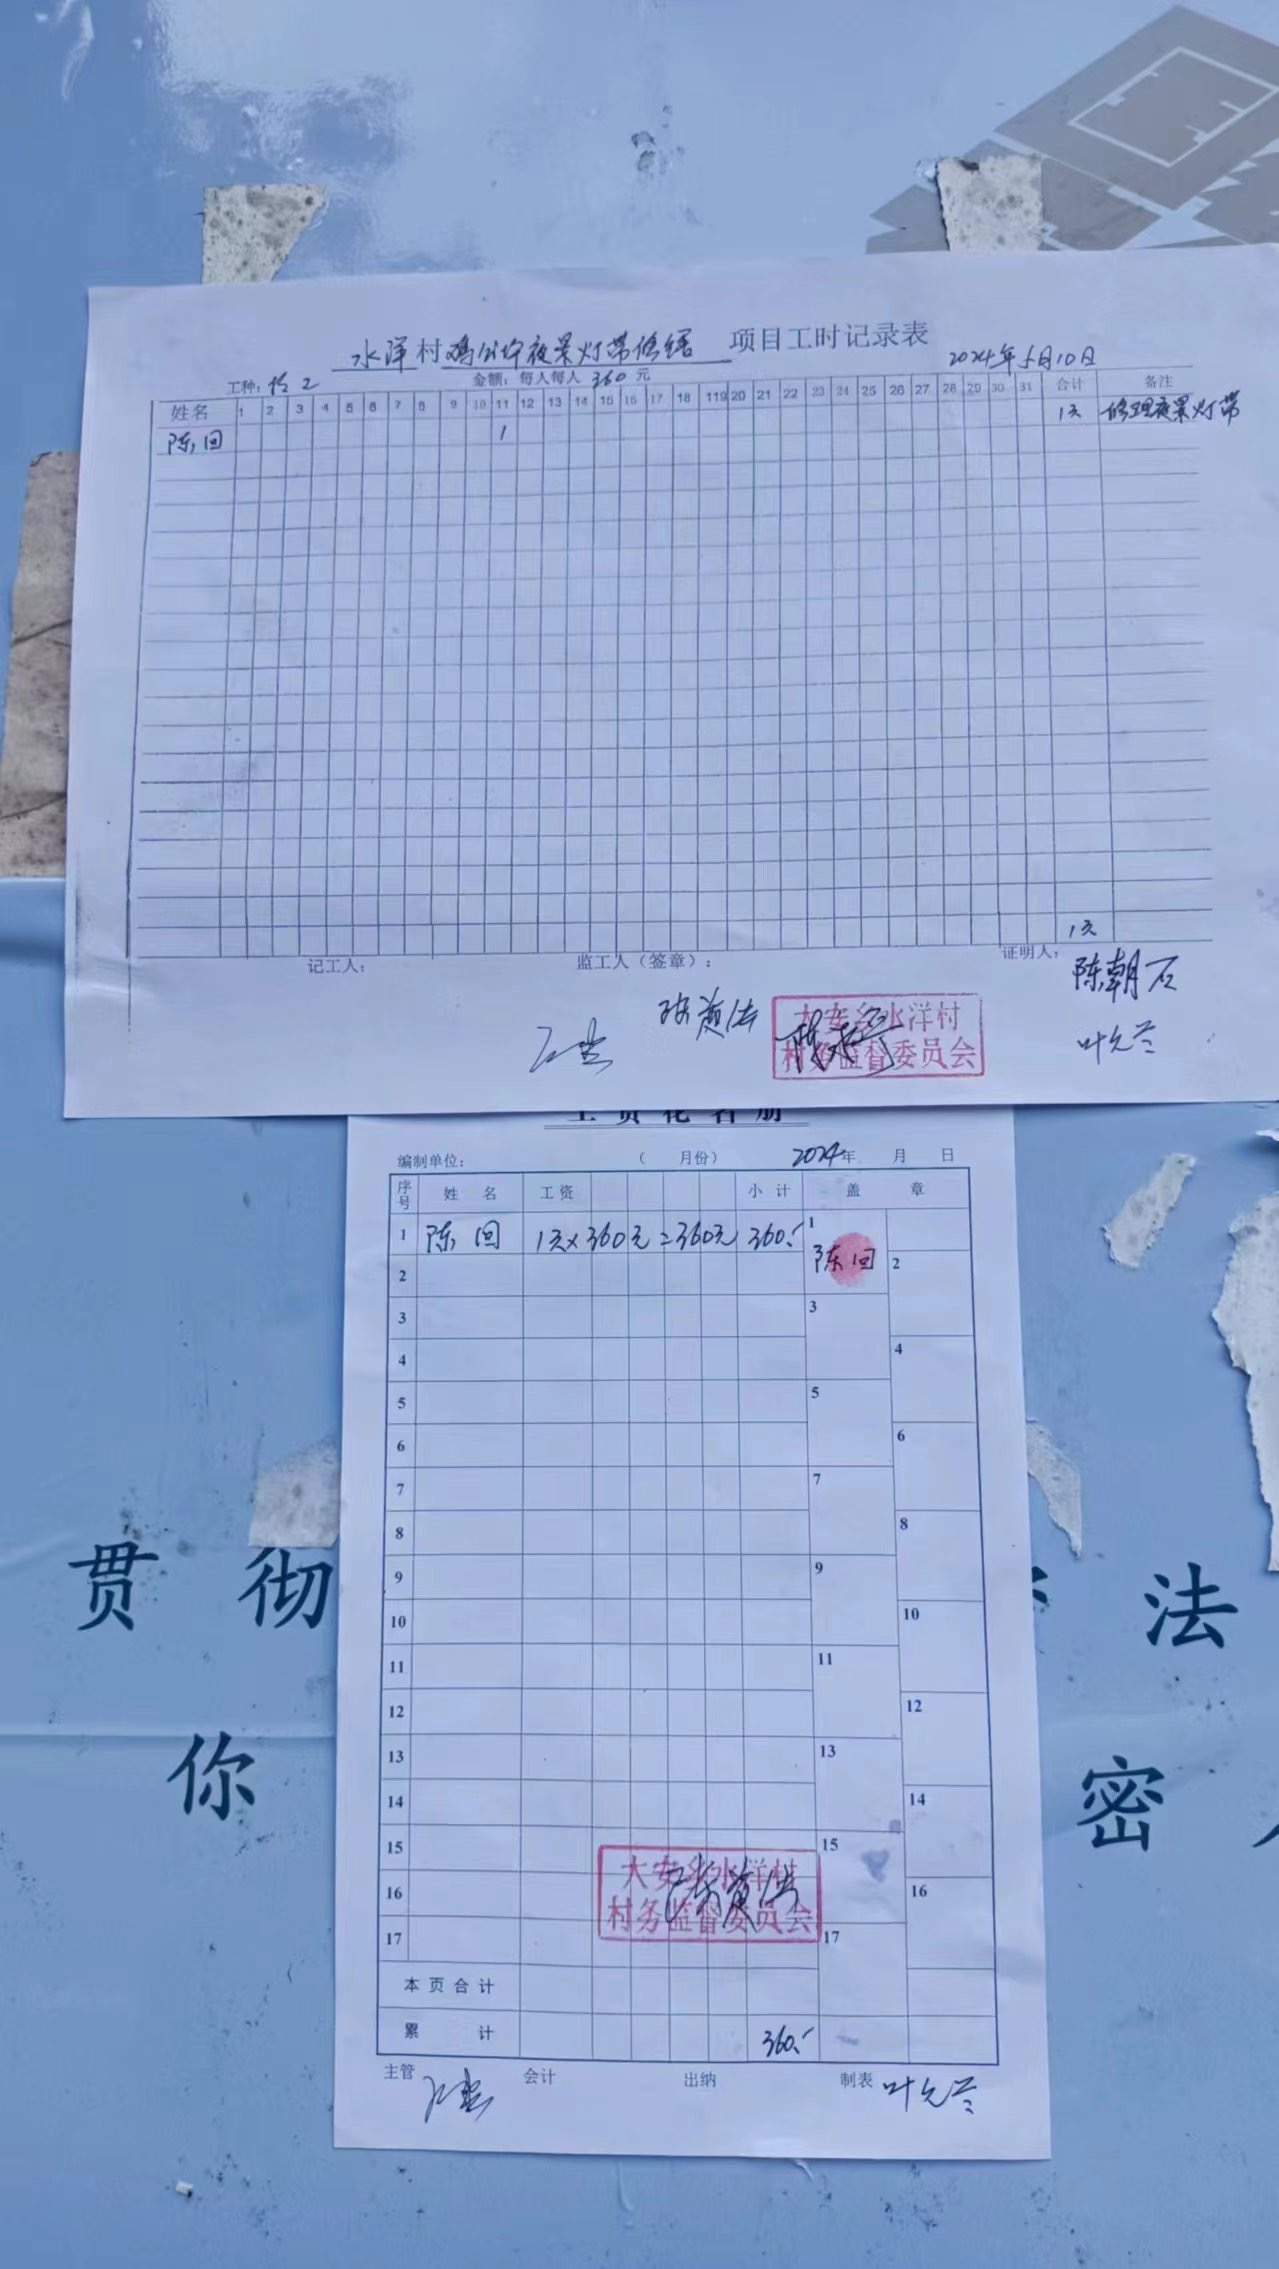 水洋村鸡公坪夜景灯带修缮 项目工时记录表
2024年5月10日
工种: 金额:每人每人 360 元
姓名 1 2 3 4 5 6 7 8 9 10 11 12 13 14 15 16 17 18 119 20 21 22 23 24 25 26 27 28 29 30 31 合计 备注
陈回 1 1天 修理夜景灯带
1天
记工人: 监工人(签章): 证明人:
陈朝石
大安乡水洋村
村务监督委员会
叶允兰
工资花名册
编制单位: ( 月份) 2024年 月 日
序号 姓 名 工资 小 计 盖 章
1 陈回 1天×360元=360元 360.- 1 陈回
2 2
3 3
4 4
5 5
6 6
7 7
8 8
9 9
10 10
11 11
12 12
13 13
14 14
15 15
16 16
17 17
大安乡水洋村
村务监督委员会
本页合计
累 计 360.-
主管 会计 出纳 制表 叶允兰
贯彻 法
你 密